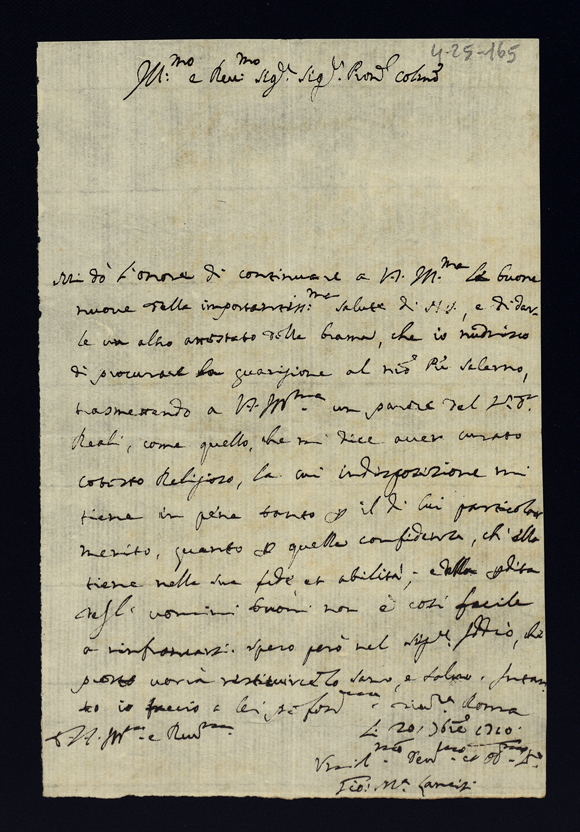 4-25-165
Ill:mo e Rev:mo Sig.r Sig.r Pron.
Mi dò l'onore di continuare a V.S. Ill.ma le buone
nuove della importantiss:ma salute di N.S., e di dar-
le un altro attestato della brama, che io nudrisco
di procurare la guarigione al Salerno,
trasmettendo a V.S. Ill.ma un parere del S.r D.r
Reali, come quello, che mi dice aver curato
cotesto Religioso, la cui indisposizione mi
tiene in pena tanto p il di lui particolar
merito, quanto p quella confidenza, ch'ella
tiene nella sua fede et abilità; e della pdita
degl' uomini buoni non è così facile
a rinfrancarsi. Spero però nel Sig.re Iddio, che
presto vorrà restituircelo sano, e salvo. Intan-
to io faccio a lei Roma
Li 20: 1710.
D V.S. Ill.ma e Rev.ma
Gio: M.a Lancisi